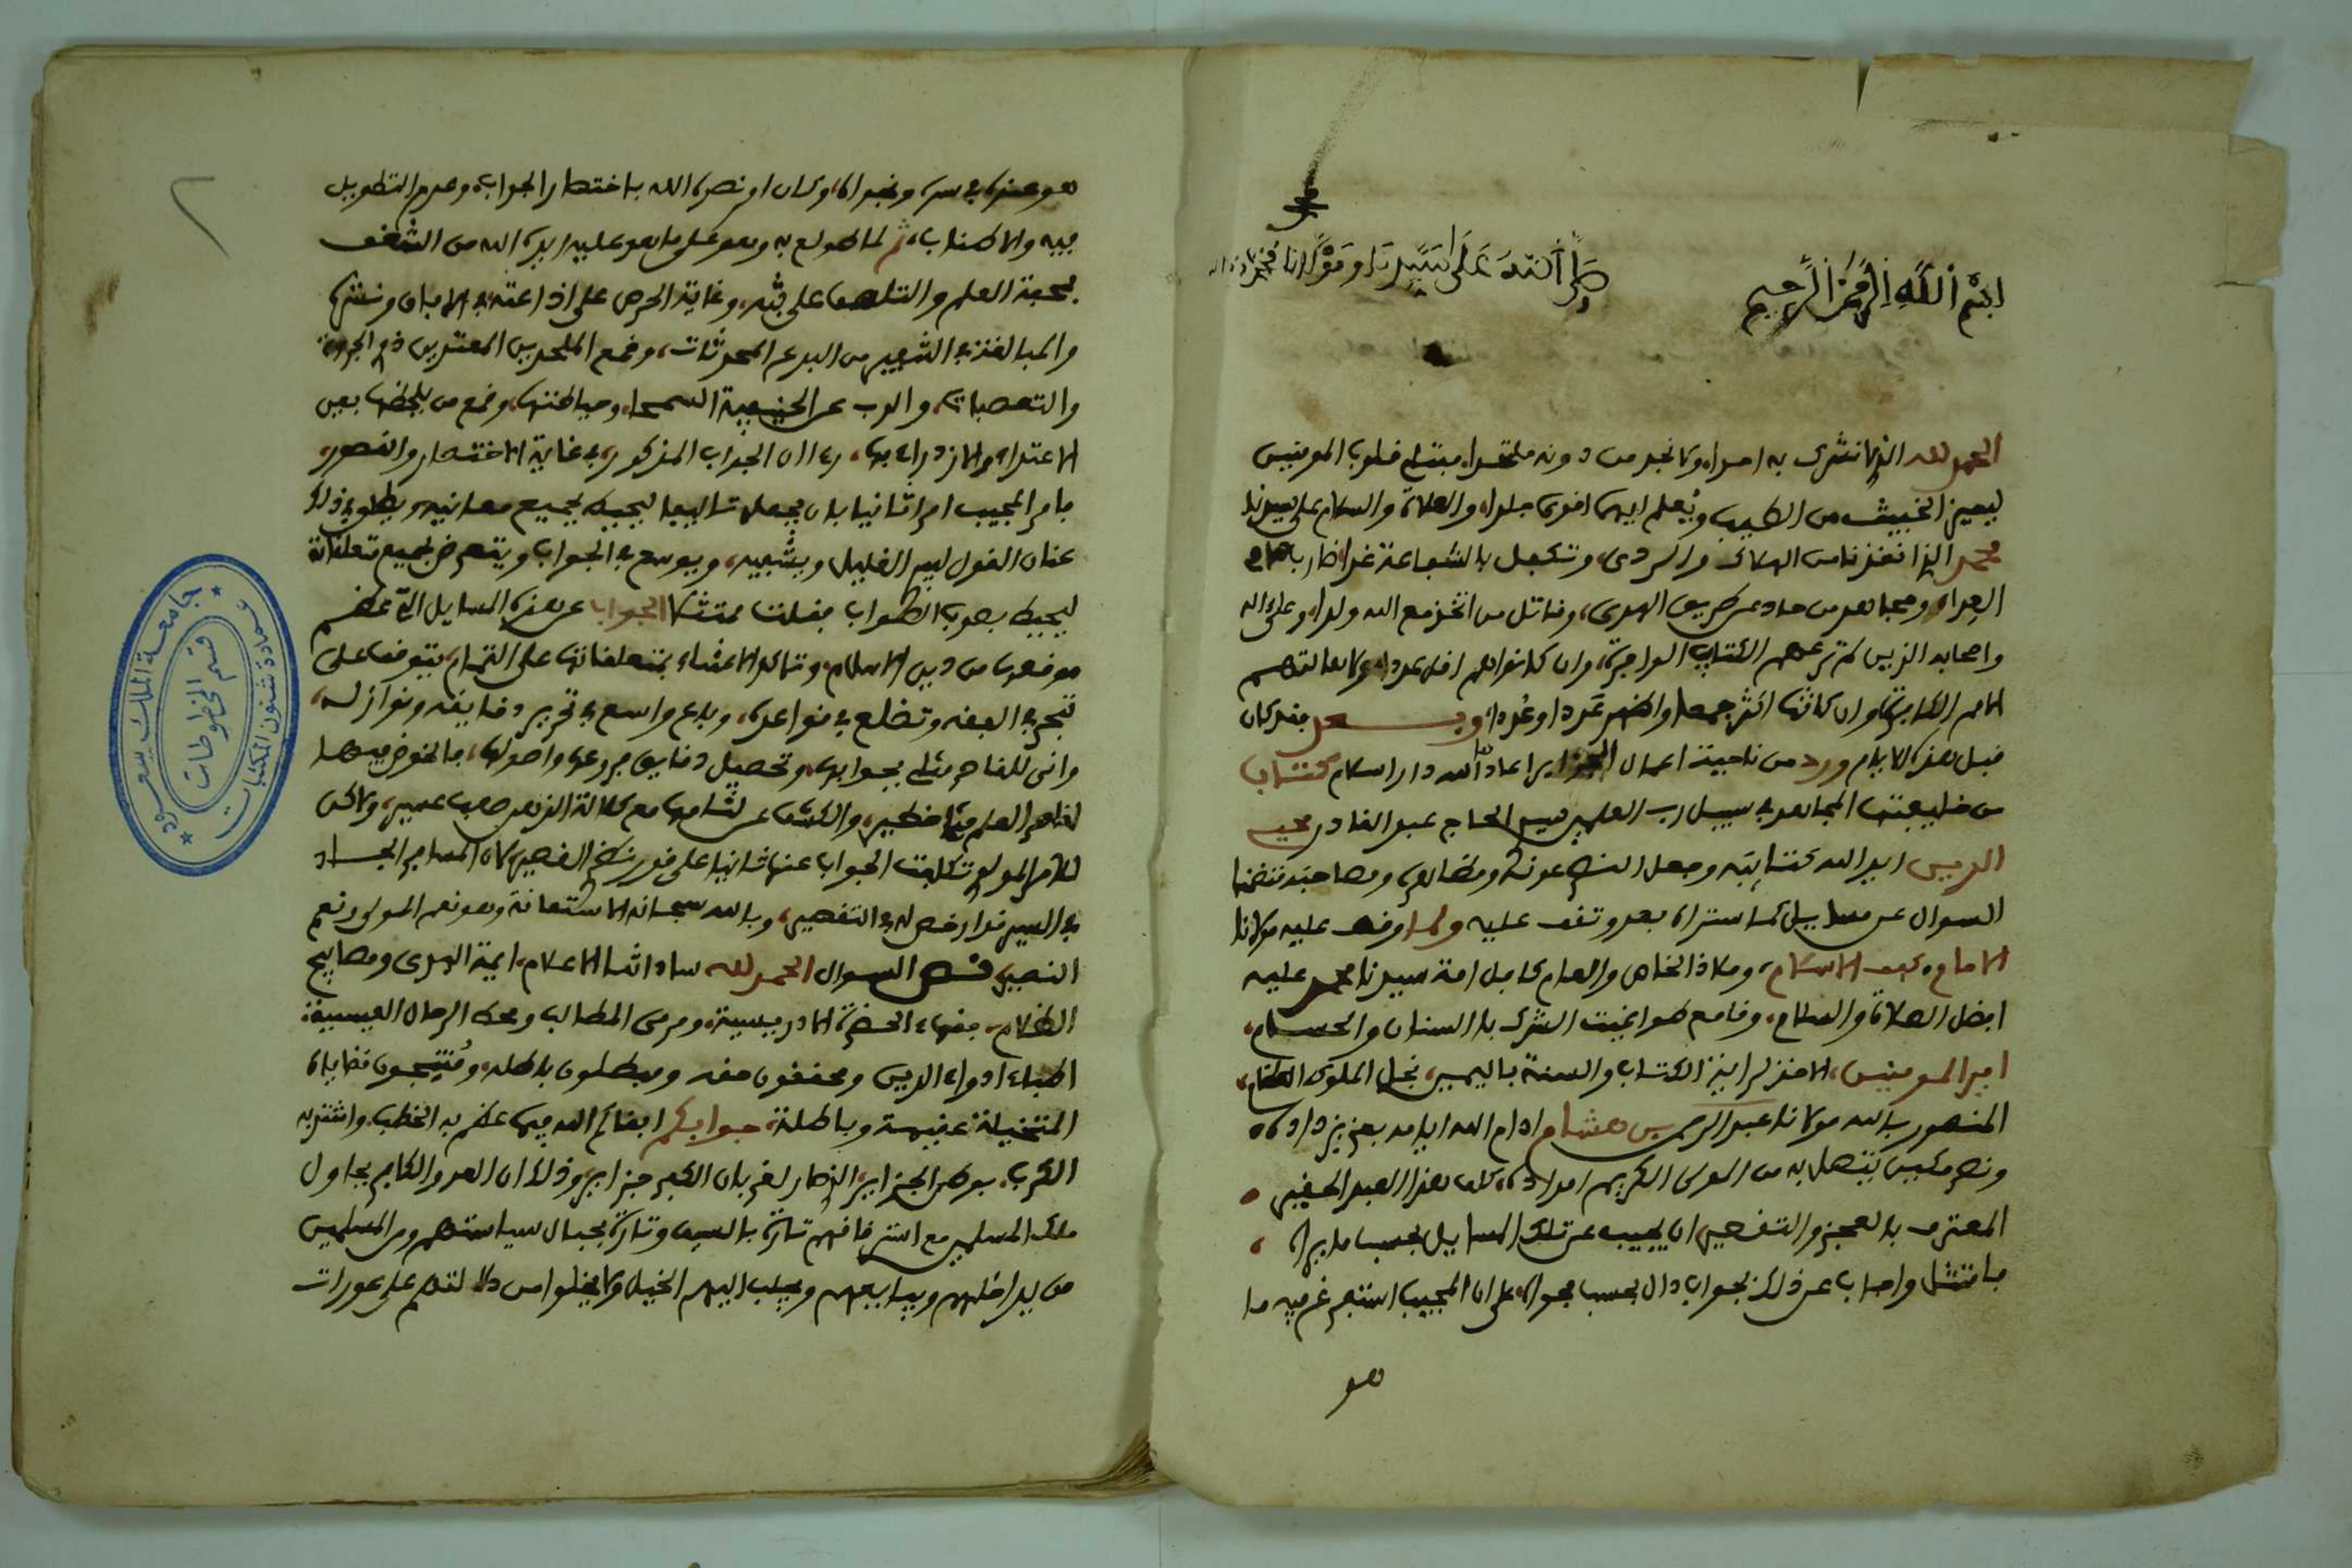 بسم الله الرحمن الرحيم
صلى الله على سيدنا ومولانا محمد وءاله
الحمد لله الذي لا نشرك به احدا، ولا نجد من دونه ملتحدا، مبتلي قلوب المومنين
ليميز الخبيث من الطيب ويعلم ايهم اقوى جلدا، والصلاة والسلام على سيدنا
محمد الذي انقذنا من الهلاك والردى، وتكفل بالشفاعة غدا،
العدا، ومجاهد من حاد عن طريق الهدى، وقاتل من اتخذ مع الله ولدا، وعلى اله
واصحابه الذين لم ترعهم الكتايب الوافرة، وان كانوا هم اقل عددا، ولا هالتهم
الامم الكافرة، وان كانت اكثر جمعا واظهر عَددا وعُددا، وبعد فقد كان
قبل هذه الايام ورد من ناحية اعمال الجزاير اعادها الله دار اسلام كتاب
من خليفتها المجاهد في سبيل رب العلمين سيد الحاج عبد القادر محيي
الدين ايد الله كتايبه وجعل النصر عونه ومضارعه ومصاحبه متضمنا
السوال عن مسايل كما ستراه بعد وتقف عليه ولما وقف عليه مولانا
الامام، كهف الاسلام، وملاذ الخاص والعام كافل امة سيدنا محمد عليه
افضل الصلاة والسلام، وقامع طواغيت الشرك بالسنان والحسام،
امير المومنين، الاخذ لراية الكتاب والسنة باليمين، نجل الملوك العظام،
المنصور بالله مولانا عبد الرحمن بن هشام ادام الله ايامه بعز يزداد
ونصر مكين يتصل به من المولى الكريم امداده، كلف هذا العبد الحقير
المعترف بالعجز والتقصير، ان يجيب عن تلك المسايل بحسب ما يراه
فامتثل واجاب عن ذلك بجواب دال بحسب فحواه، على ان المجيب استفرغ فيه ما
هو
هو عنده في سره ونجواه، وكان امر نصره الله باختصار الجواب، وعدم التطويل
فيه والاطناب، ثم لما طولع به وهو على ما هو عليه ايده الله من الشغف
بمحبة العلم والتلهف على بثه، وغاية الحرص على اذاعته في الافاق ونشره
والمبالغة في التنفير من البدع المحدثات، وقمع الملحدين المعتدين ذوي الجهل
والتعصبات، والذب عن الحنيفية السمحا، وحياطتها، وقمع من يلحظها بعين
الاعتداء والازدراء بها، رءا ان الجواب المذكور، في غاية الاختصار والقصور،
فامر المجيب امرا ثانيا بان يجعل تاليفا ليحيط بجميع معانيه، ويطلق في ذلك
عنان القول ليبرد الغليل ويشفيه، ويوسع في الجواب ويتعرض لجميع متعلقاته
ليحيط بصوب الصواب فقلت ممتثلا الجواب عن هذه المسايل التي عظم
موقعها من دين الاسلام، وتاكد الاعتناء بمتعلقاتها على التمام، يتوقف على
تبحر في الفقه وتضلع في قواعده، وباع واسع في تحرير دقايقه ونوازله،
وانى للقاصر مثلي بجوابها، وتحصيل دقايق فروعها واصولها، فالخوض فيها
لقاصر العلم مثلي خطير، والكشف عن لثامها مع كلالة الذهن صعب عسير، ولاكن
للامر المولوي تكلفت الجواب عنها ثانيا على قدر نظر القصير، لان المسافر الجاد
في السير قد ارخص له في التقصير، وبالله سبحانه الاستعانة وهو نعم المولى ونعم
النصير، نص السوال الحمد لله ساداتنا الاعلام، ايمة الهدى ومصابيح
الظلام، فقهاء الحضرة الادريسية، ومرمى المطالب ومحط الرحال العيسية،
اطباء ادواء الدين ومحققون حقه ومبطلون باطله، ومنتجون قضاياه
المتخيلة عقيمة وباطلة، جوابكم ابقاكم الله فيما عظم به الخطب، واشتد به
الكرب، بوطن الجزاير، الذي صار لغربان الكفر جزاير، وذلك ان العدو الكافر يحاول
ملك المسلمين مع استرقاقهم تارة بالسيف وتارة بحبال سياستهم ومن المسلمين
من يداخلهم ويبايعهم ويجلب اليهم الخيل ولا يخلوا من دلالتهم على عورات
جامعة الملك سعود
عمادة شئون المكتبات
قسم المخطوطات
٢